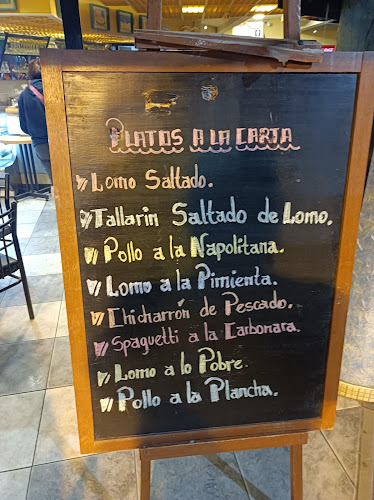 PLATOS A LA CARTA
Lomo Saltado.
Tallarin Saltado de Lomo.
Pollo a la Napolitana.
Lomo a la Pimienta.
Chicharrón de Pescado.
Spaguetti a la Carbonara.
Lomo a lo Pobre.
Pollo a la Plancha.